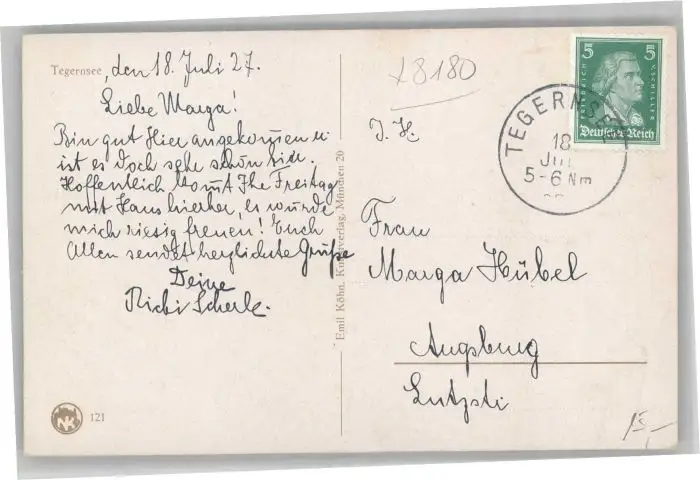 Tegernsee, den 18. Juli 27.
Liebe Marga!
Bin gut Hier angekommen u.
ist es doch sehr schön hier.
Hoffentlich kommt Ihr Freitag
mit Hans hierher, es würde
mich riesig freuen! Euch
Allen sendet herzlichste Grüße
Deine
Richi
121
Emil Köhn, Kunstverlag, München 20
x8180
5 5
FRIEDRICH V. SCHILLER
Deutsches Reich
TEGERNSEE
18
JUL
5-6 Nm
Frau
Marga Hübel
Augsburg
Lutzstr
15,-